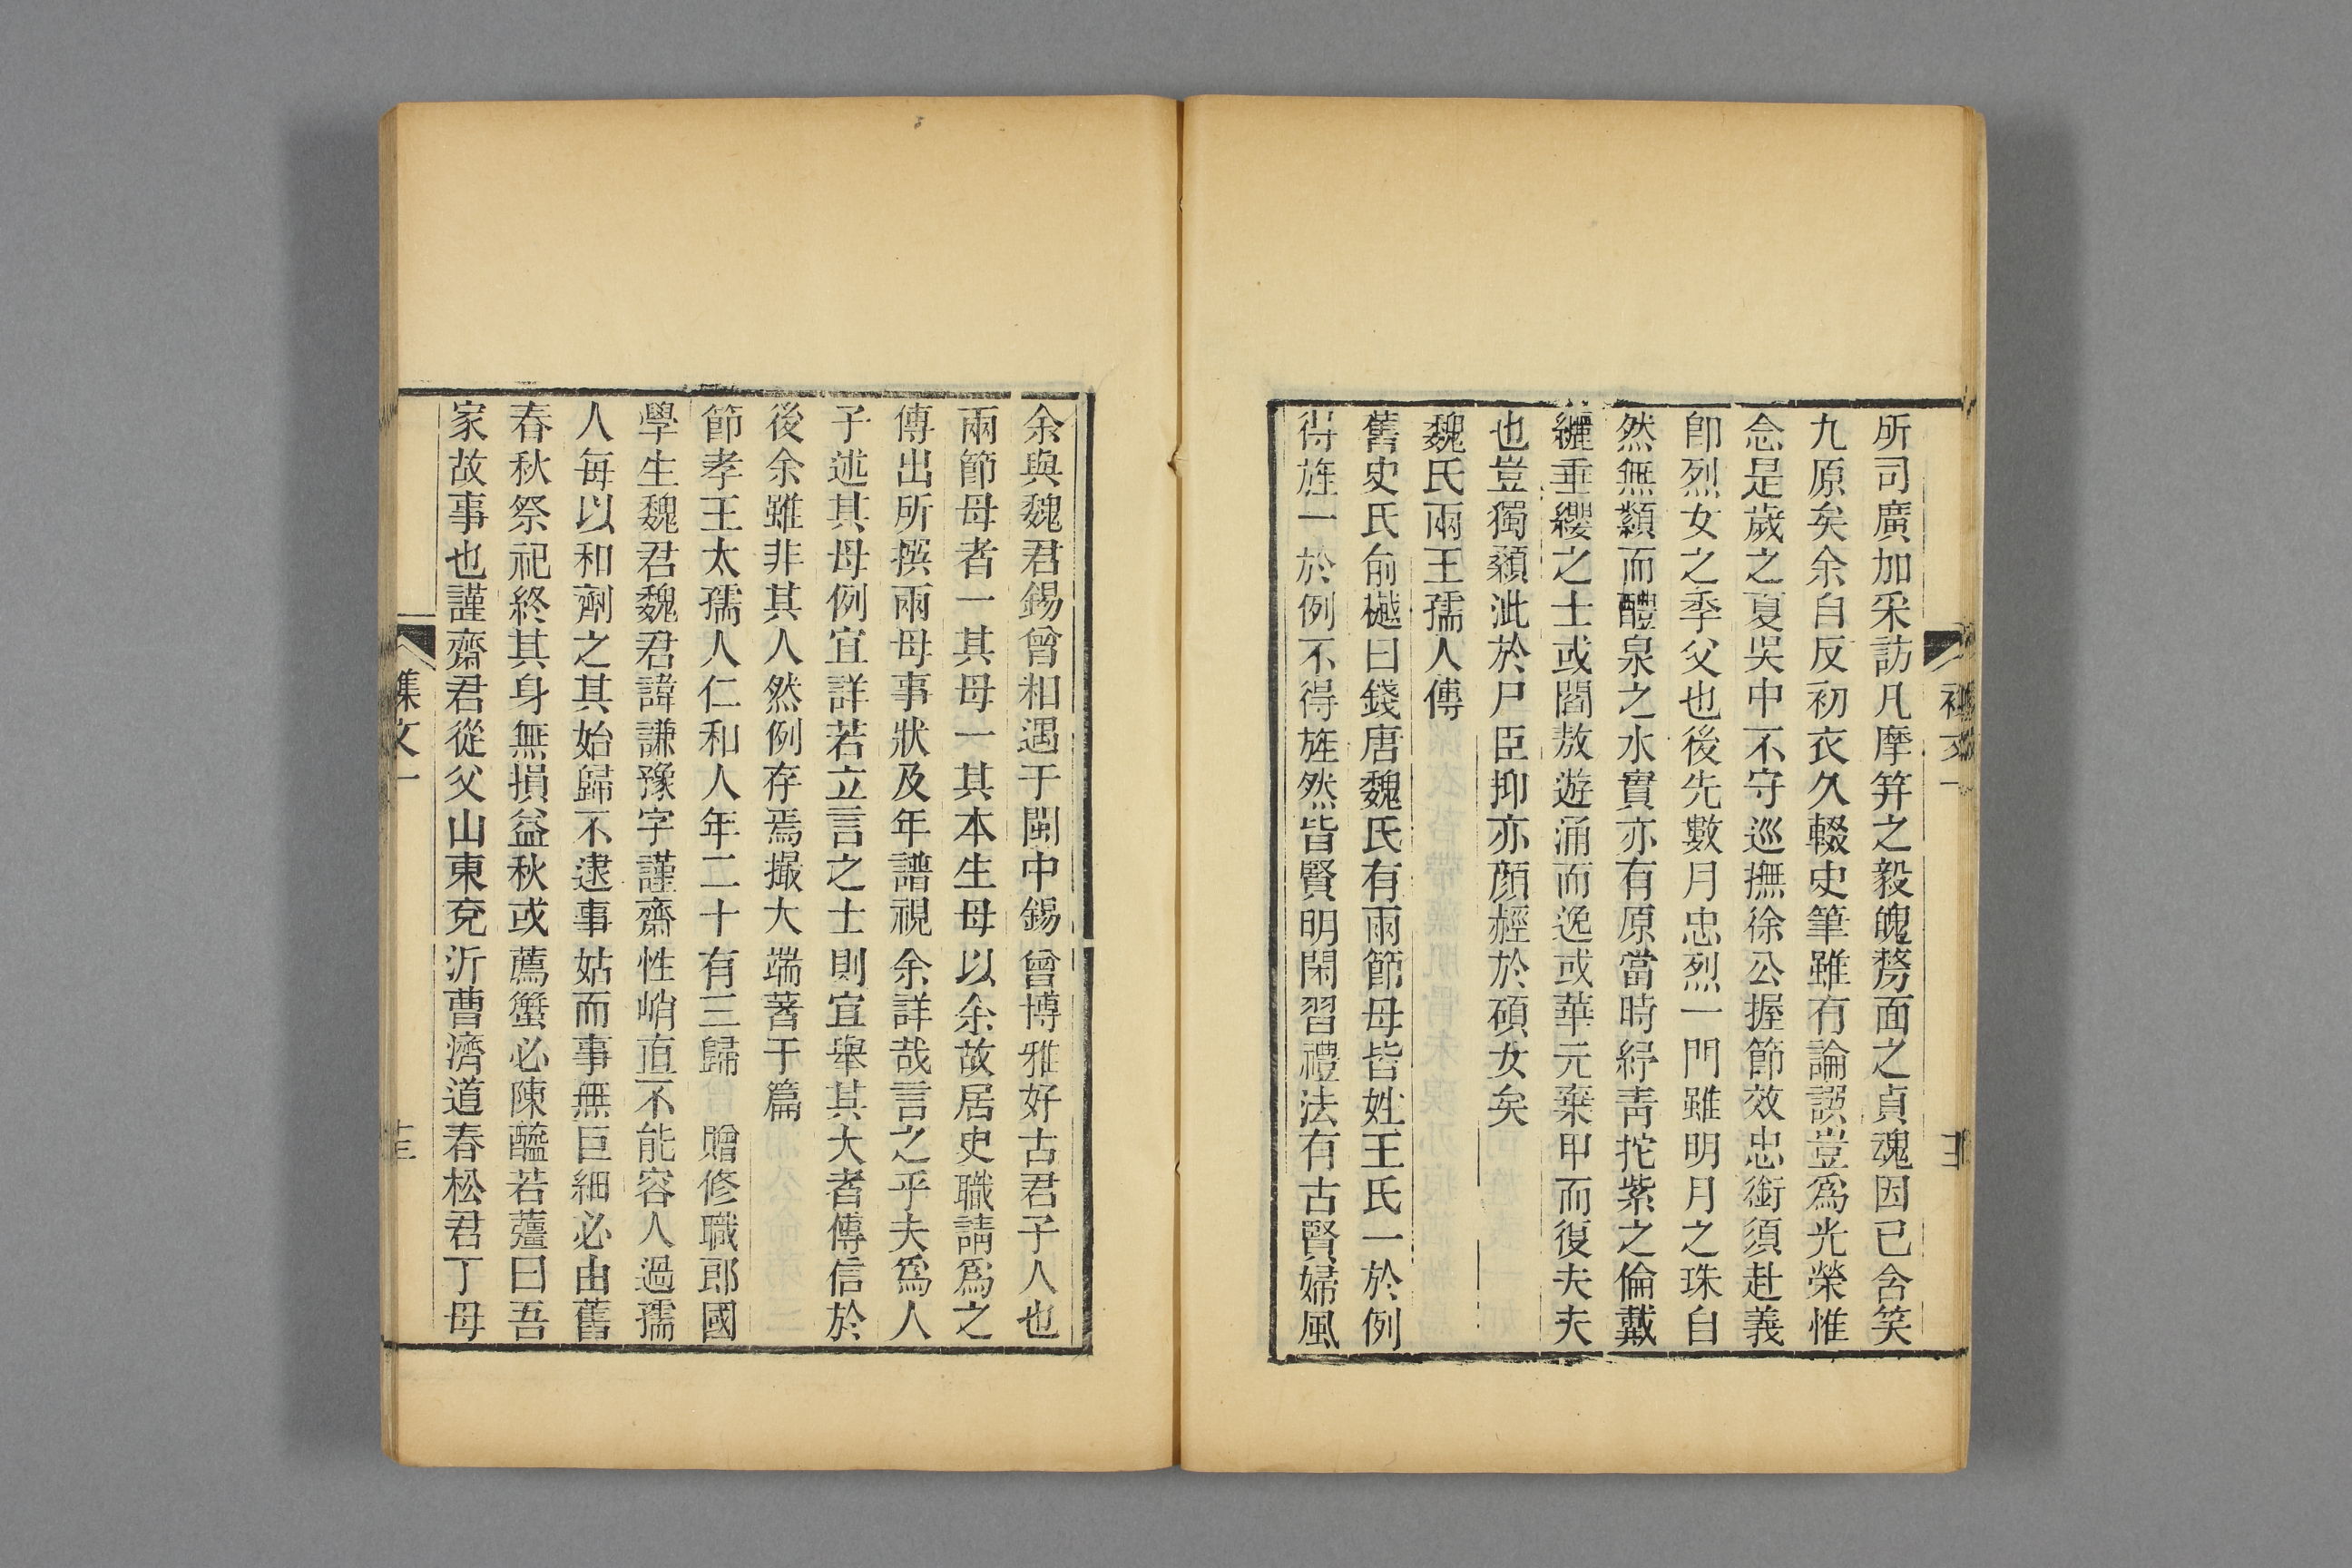 所司廣加采訪凡摩笄之毅魄剺面之貞魂因已含笑
九原矣余自反初衣久輟史筆雖有論譔豈爲光榮惟
念是歲之夏吳中不守巡撫徐公握節效忠銜須赴義
卽烈女之季父也後先數月忠烈一門雖明月之珠自
然無纇而醴泉之水實亦有原當時紆靑拕紫之倫戴
纚垂纓之士或闇敖遊涌而逸或華元棄甲而復夫夫
也豈獨纇泚於尸臣抑亦顏經於碩女矣
魏氏兩王孺人傳
舊史氏俞樾曰錢唐魏氏有兩節母皆姓王氏一於例
得旌一於例不得旌然皆賢明閑習禮法有古賢婦風
余與魏君錫曾相遇于閩中錫曾博雅好古君子人也
兩節母者一其母一其本生母以余故居史職請爲之
傳出所撰兩母事狀及年譜視余詳哉言之乎夫爲人
子述其母例宜詳若立言之士則宜舉其大者傳信於
後余雖非其人然例存焉撮大端著于篇
節孝王太孺人仁和人年二十有三歸 贈修職郎國
學生魏君魏君諱謙豫字謹齋性峭直不能容人過孺
人每以和劑之其始歸不逮事姑而事無巨細必由舊
春秋祭祀終其身無損益秋或薦蟹必陳醯若薑曰吾
家故事也謹齋君從父山東兗沂曹濟道春松君丁母